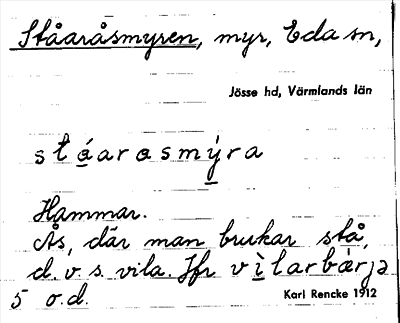 Ståaråsmyren, myr, Eda sn,
Jösse hd, Värmlands län
stá̱arasmý̱ra
Hammar.
Ås, där man brukar stå,
d.v.s. vila. Jfr vı̱̀larbæ̱̀rjə
5 o.d.
Karl Rencke 1912